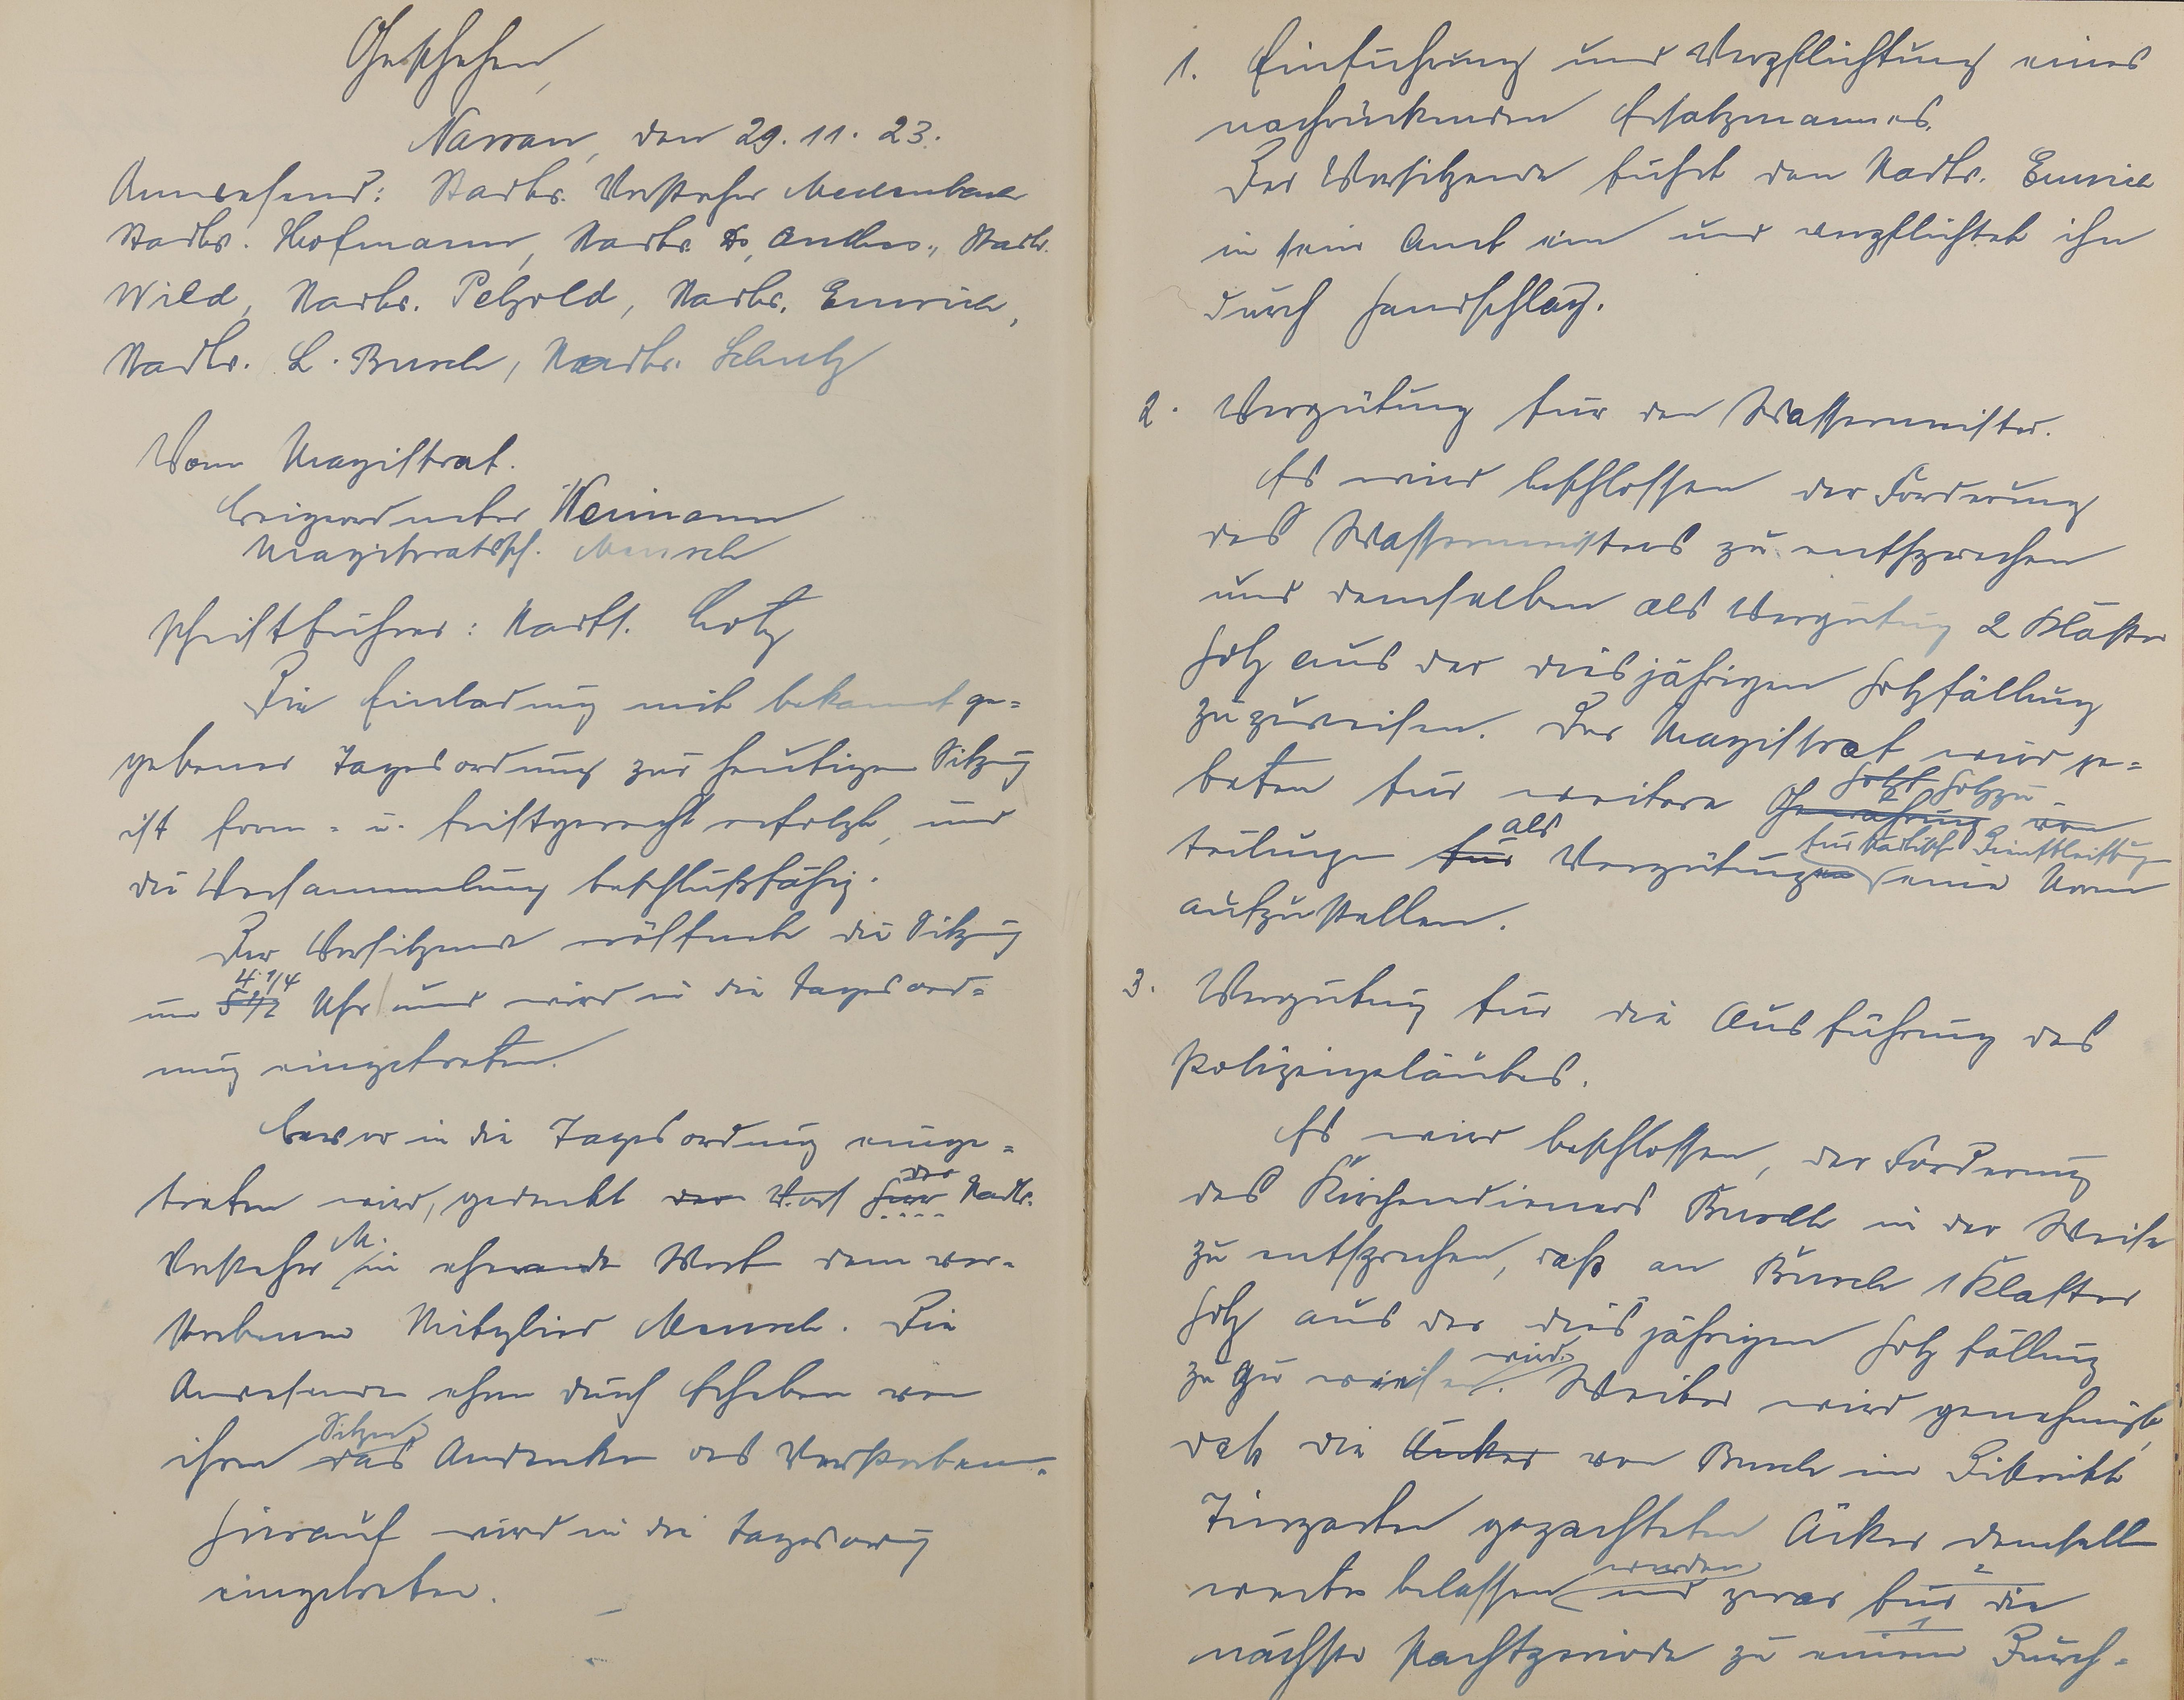 Geschehen,
Nassau, den 29. 11. 23.
Anwesend: Stadtv. Vorsteher Medenbach
Stadtv. Hofmann, Stadtv. Dr. Anthes, Stadtv.
Wild, Stadtv. Petzold, Stadtv. Emrich,
Stadtv. L. Busch, Stadtv. Schulz
Vom Magistrat.
Beigeordneter Weimann
Magistratssch. Mensch
Schriftführer: Stadtv. Lotz
Die Einladung mit bekannt ge=
gebener Tagesordnung zur heutigen Sitzung
ist form- u. fristgerecht erfolgt, und
die Versammlung beschlußfähig.
Der Vorsitzende eröffnete die Sitzung
4 1/4
um 5 1/2 Uhr und wird in die Tagesord=
nung eingetreten.
Bevor in die Tagesordnung einge=
der
treten wird, gedenkt der Herr Stadtv.
M.
Vorsteher in ehrende Wort dem ver-
storbenen Mitglied Mensch. Die
Anwesenden ehren durch Erheben von
Sitzen
ihren das Andenken des Verstorbenen.
Hierauf wird in die Tagesordng
eingetreten.
1. Einführung und Verpflichtung eines
nachrückenden Ersatzmannes.
Der Vorsitzende führt den Stadtv. Emrich
in sein Amt ein und verpflichtet ihn
durch Handschlag.
2. Vergütung für den Wassermeister.
Es wird beschlossen der Forderung
des Wassermeisters zu entsprechen
und demselben als Vergütung 2 Klafter
Holz aus der diesjährigen Holzfällung
zuzuweisen. Der Magistrat wird ge=
Holz Holzzu-
beten für weitere Gewährung von
als für städtische Dienstleistung
teilungen für Vergütungen eine Norm
aufzustellen.
3. Vergütung für die Ausführung des
Polizeigeläutes.
Es wird beschlossen, der Forderung
des Kirchendieners Busch in der Weise
zu entsprechen, daß an Busch 1 Klafter
Holz aus der diesjährigen Holzfällung
wird
zu gewiesen. Weiter wird genehmigt,
daß die Äcker von Busch im Distrikt
Tiergarten gepachteten Äcker demselben
werden 2
weiter belassen und zwar für die
1
nächste Pachtperiode zu einem Durch-